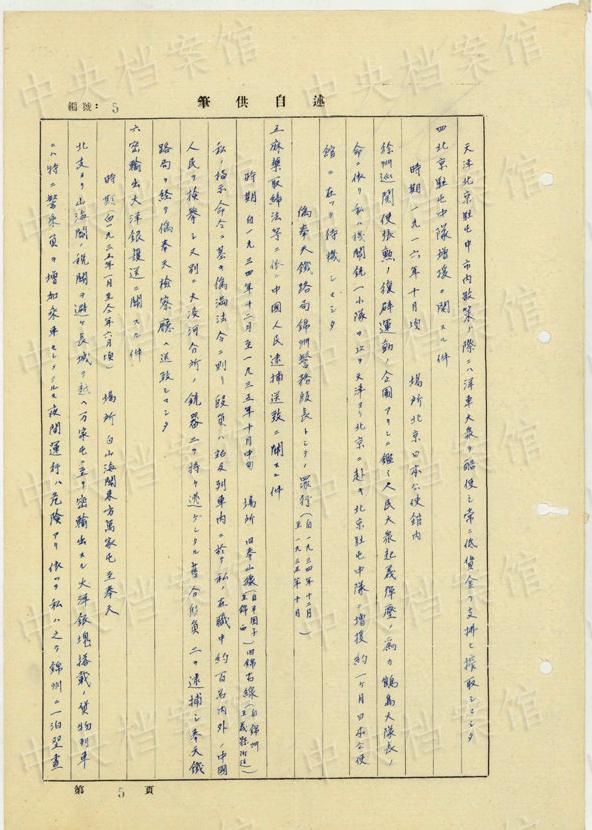 述自供筆
編號: 5
天津北京駐屯中市内散策ノ際ニハ洋車大衆ヲ酷使シ常ニ低賃金ヲ支拂ヒ搾取シマシタ
四 北京駐屯中隊増援ニ関スル件
時期 一九一六年十月頃 場所 北京日本公使館内
徐州巡閲使張勲ノ復辟運動ノ企図アリシニ鑑ミ人民大衆起義弾壓ノ為メ鶴見大隊長ノ
命ニ依リ私ハ機関銃一小隊ヲ以ヲ天津ヨリ北京ニ赴キ北京駐屯中隊ヲ増援約一ケ月日本公使
館ニ在ツテ待機シマシタ
偽奉天鐵路局錦州警務段長トシテノ罪行(自一九三四年十二月至一九三五年十月)
五 麻藥取締法等ニ依ル中國人民逮捕送致ニ関スル件
時期 自一九三四年十二月至一九三五年十月中旬 場所 旧奉山線(自 至錦西)旧錦古線(自錦州至義縣附近)
私ノ指示命令ニ基キ偽満法令ニ則リ段員ハ站及列車内ニ於テ私ノ在職中約百名内外ノ中國
人民ヲ検挙シ又別ニ大凌河分所ノ銃器ニヲ持チ逃ゲシタル舊分所員二ヲ逮捕シ奉天鐵
路局ヲ経テ偽奉天検察廳ヘ送致シマシタ
六 密輸出大洋銀護送ニ関スル件
時期(自一九三五年一月至仝年六月頃) 場所 自山海関東方萬家屯至奉天
北支ヨリ山海関ノ税関ヲ避ケ長城ヲ越ヘ万家屯ニ至リ密輸出スル大洋銀塊搭載ノ貨物列車
ニハ特ニ警乗員ヲ増加乗車セシメタルモ夜間運行ハ危険アリ依ツテ私ハ之ヲ錦州ニ一泊翌晝
第 5 頁
中央档案馆